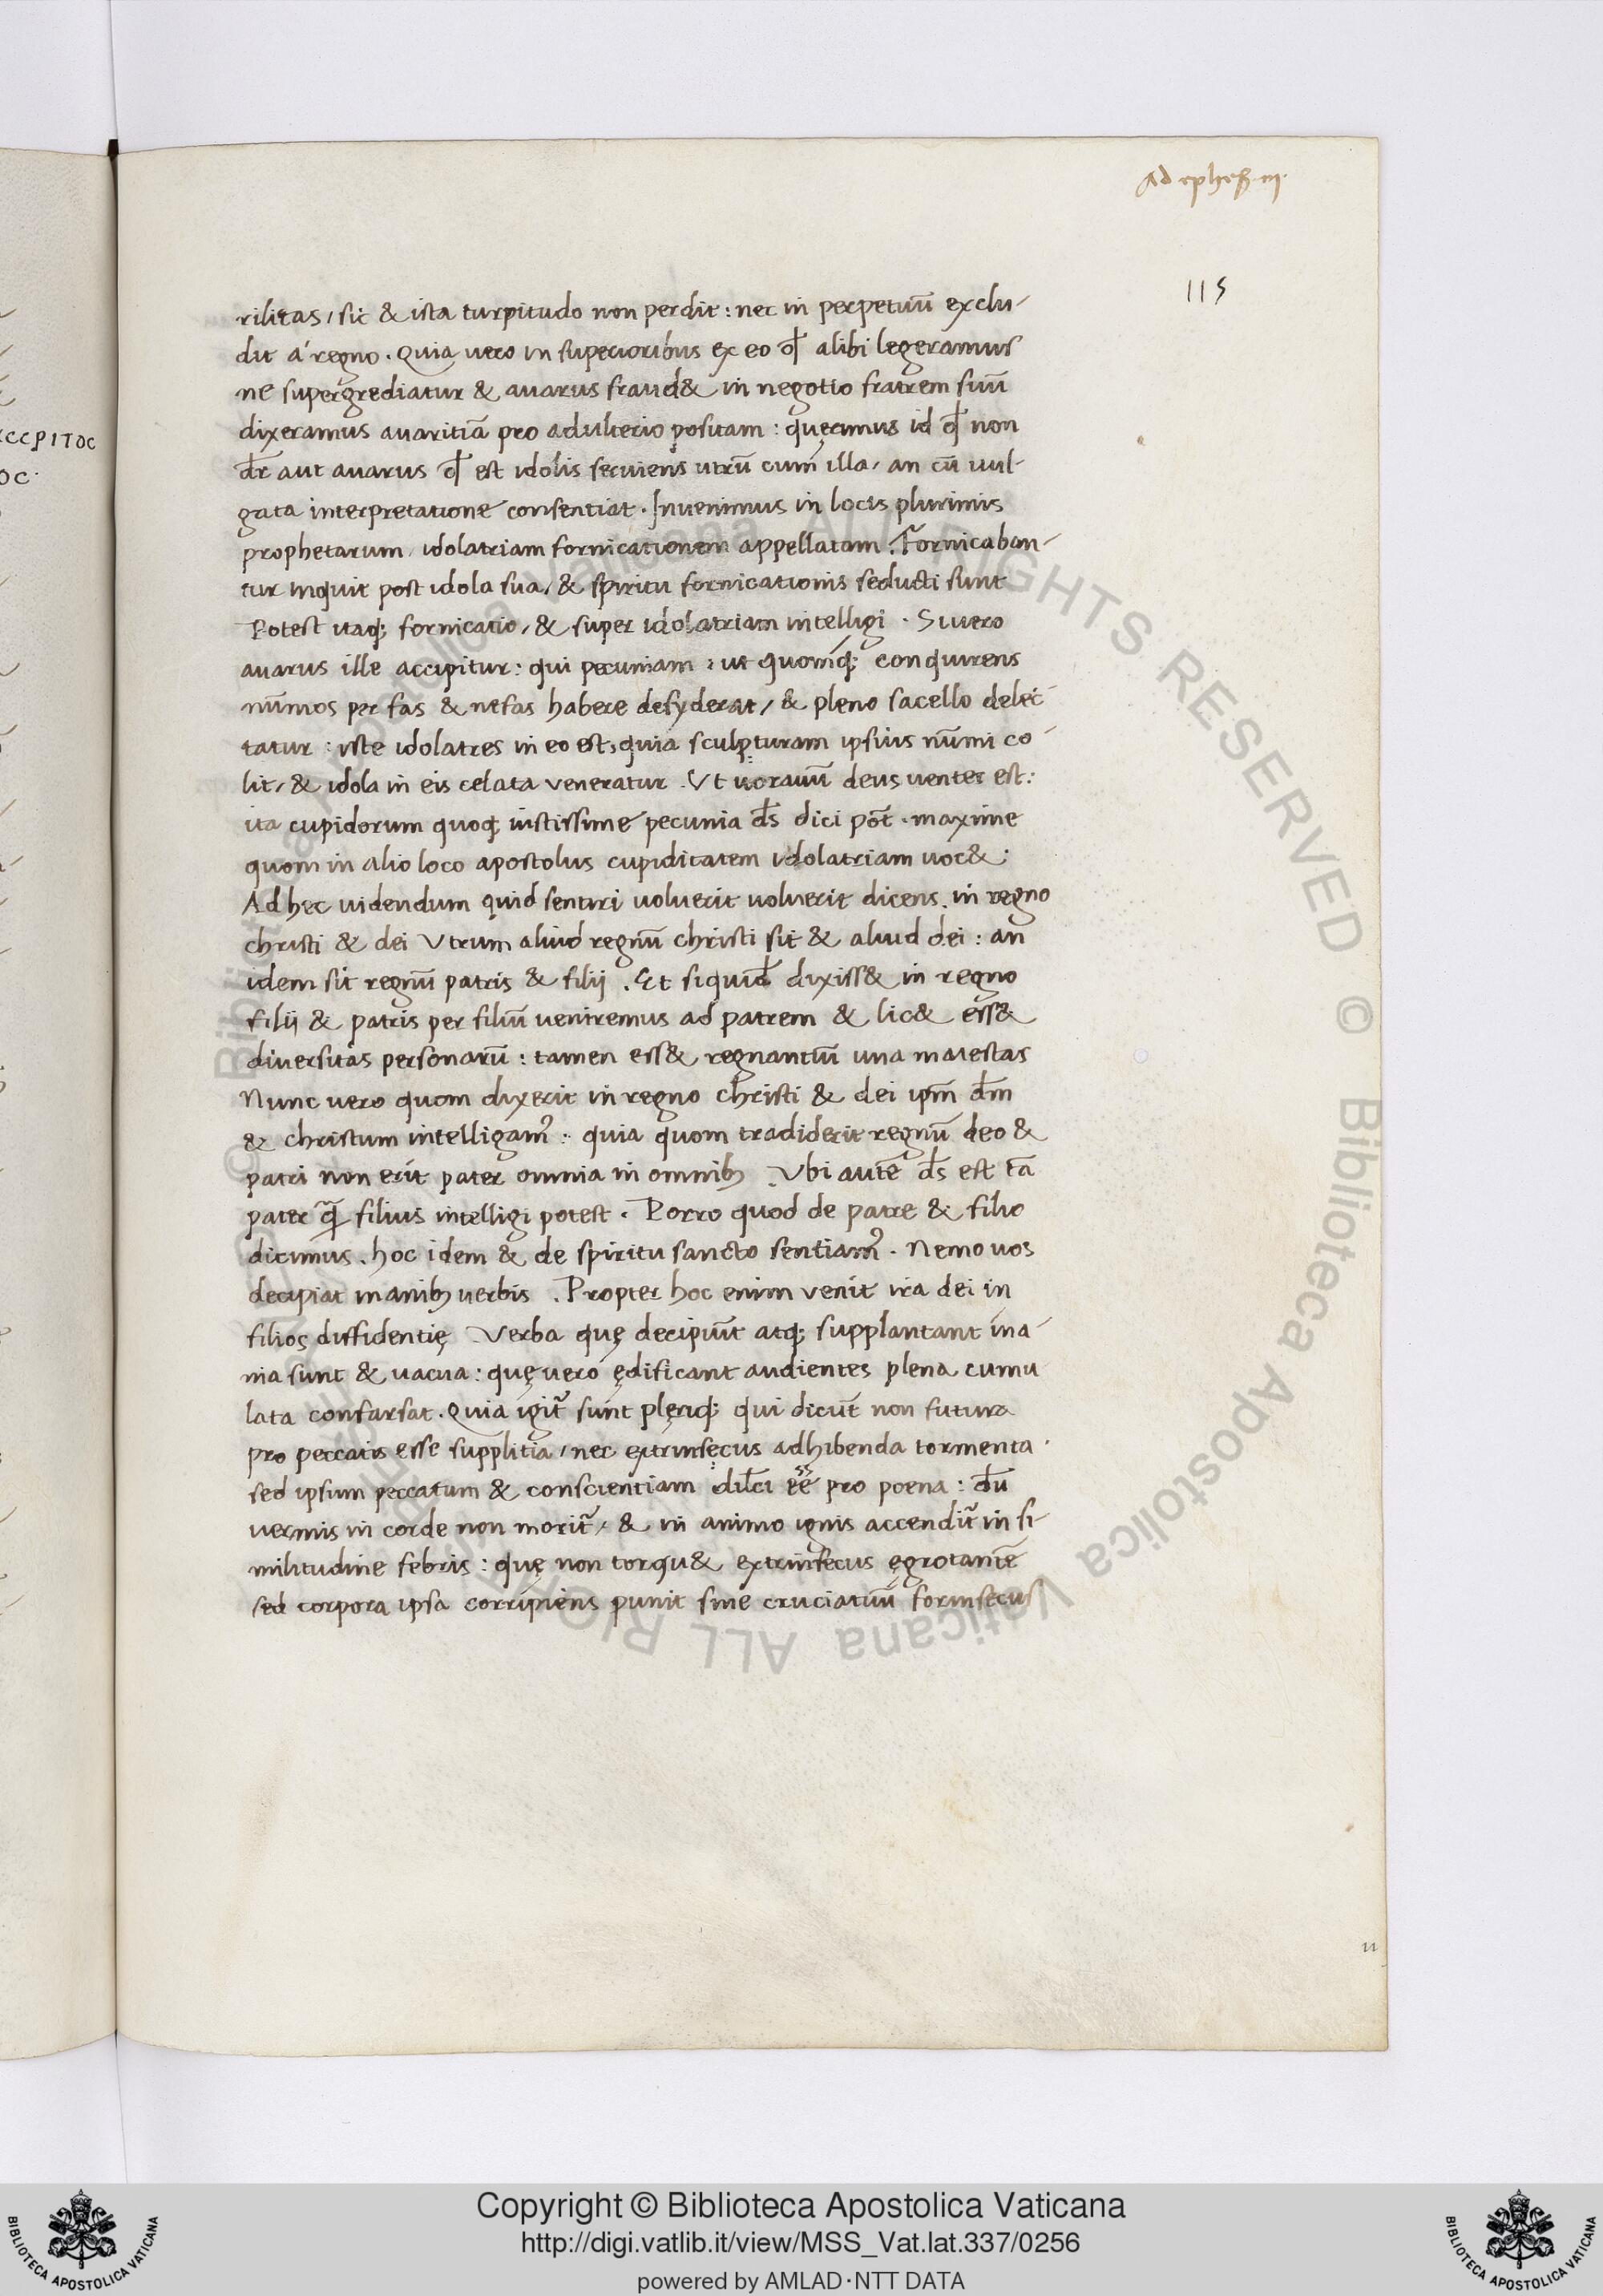 Ad ephes. iii.
115
rilitas, sic & ista turpitudo non perdit: nec in perpetuū exclu-
dit á regno. Quia uero in superioribus ex eo qđ alibi legeramus
ne supergrediatur & auarus fraud& in negotio fratrem suū
dixeramus auaritiā pro adulterio positam: quęrimus id qđ non
dr̄ aut auarus qđ est idolis seruiens utrū cum illa, an cū uul-
gata interpretatione consentiat. Inuenimus in locis plurimis
prophetarum, idolatriam fornicationem appellatam. Fornicaban-
tur inquit post idola sua, & spiritu fornicationis seducti sunt
Potest itaq; fornicatio, & super idolatriam intelligi. Si uero
auarus ille accipitur: qui pecuniam: ut quomq; conquirens
nūmos per fas & nefas habere desyderat, & pleno sacello delec-
tatur: iste idolatres in eo est, quia sculpturam ipsius nūmi co-
lit, & idola in eis celata veneratur. Vt uoraciū deus uenter est:
ita cupidorum quoq; iustissime pecunia d̄s dici pōt. maxime
quom in alio loco apostolus cupiditatem idolatriam uoc&:
Ad hec uidendum quid sentiri uoluerit uoluerit dicens. in regno
christi & dei Vtrum aliud regnū christi sit & aliud dei: an
idem sit regnū patris & filij. Et siquid̄ dixiss& in regno
filij & patris per filiū ueniremus ad patrem & lic& ess&
diuersitas personarū: tamen ess& regnantiū una maiestas
Nunc uero quom dixerit in regno christi & dei ipm̄ dm̄
& christum intelligam⁹: quia quom tradiderit regnū deo &
patri non erit pater omnia in omnib; Vbi autē d̄s est tā
pater q̄ filius intelligi potest. Porro quod de patre & filio
dicimus. hoc idem & de spiritu sancto sentiam⁹. Nemo uos
decipiat inanib; uerbis. Propter hoc enim venit ira dei in
filios diffidentię Verba quę decipiūt atq; supplantant ina-
nia sunt & uacua: quę uero ędificant audientes plena cumu
lata confarsat. Quia igit̃ sunt plęriq; qui dicūt non futura
pro peccatis esse supplitia, nec extrinsęcus adhibenda tormenta.
sed ipsum peccatum & conscientiam dilci eē pro poena: dū
uermis in corde non morit̃, & in animo ignis accendit̃ in si-
militudine febris: quę non torqu& extrinsecus ęgrotantē
sed corpora ipsa corripiens punit sine cruciatuū forinsecus
u
CCPITOC
OC.
© Biblioteca Apostolica Vaticana ALL RIGHTS RESERVED © Biblioteca Apostolica Vaticana ALL RIGHTS RESERVED
Copyright © Biblioteca Apostolica Vaticana
http://digi.vatlib.it/view/MSS_Vat.lat.337/0256
powered by AMLAD·NTT DATA
BIBLIOTECA APOSTOLICA VATICANA
BIBLIOTECA APOSTOLICA VATICANA